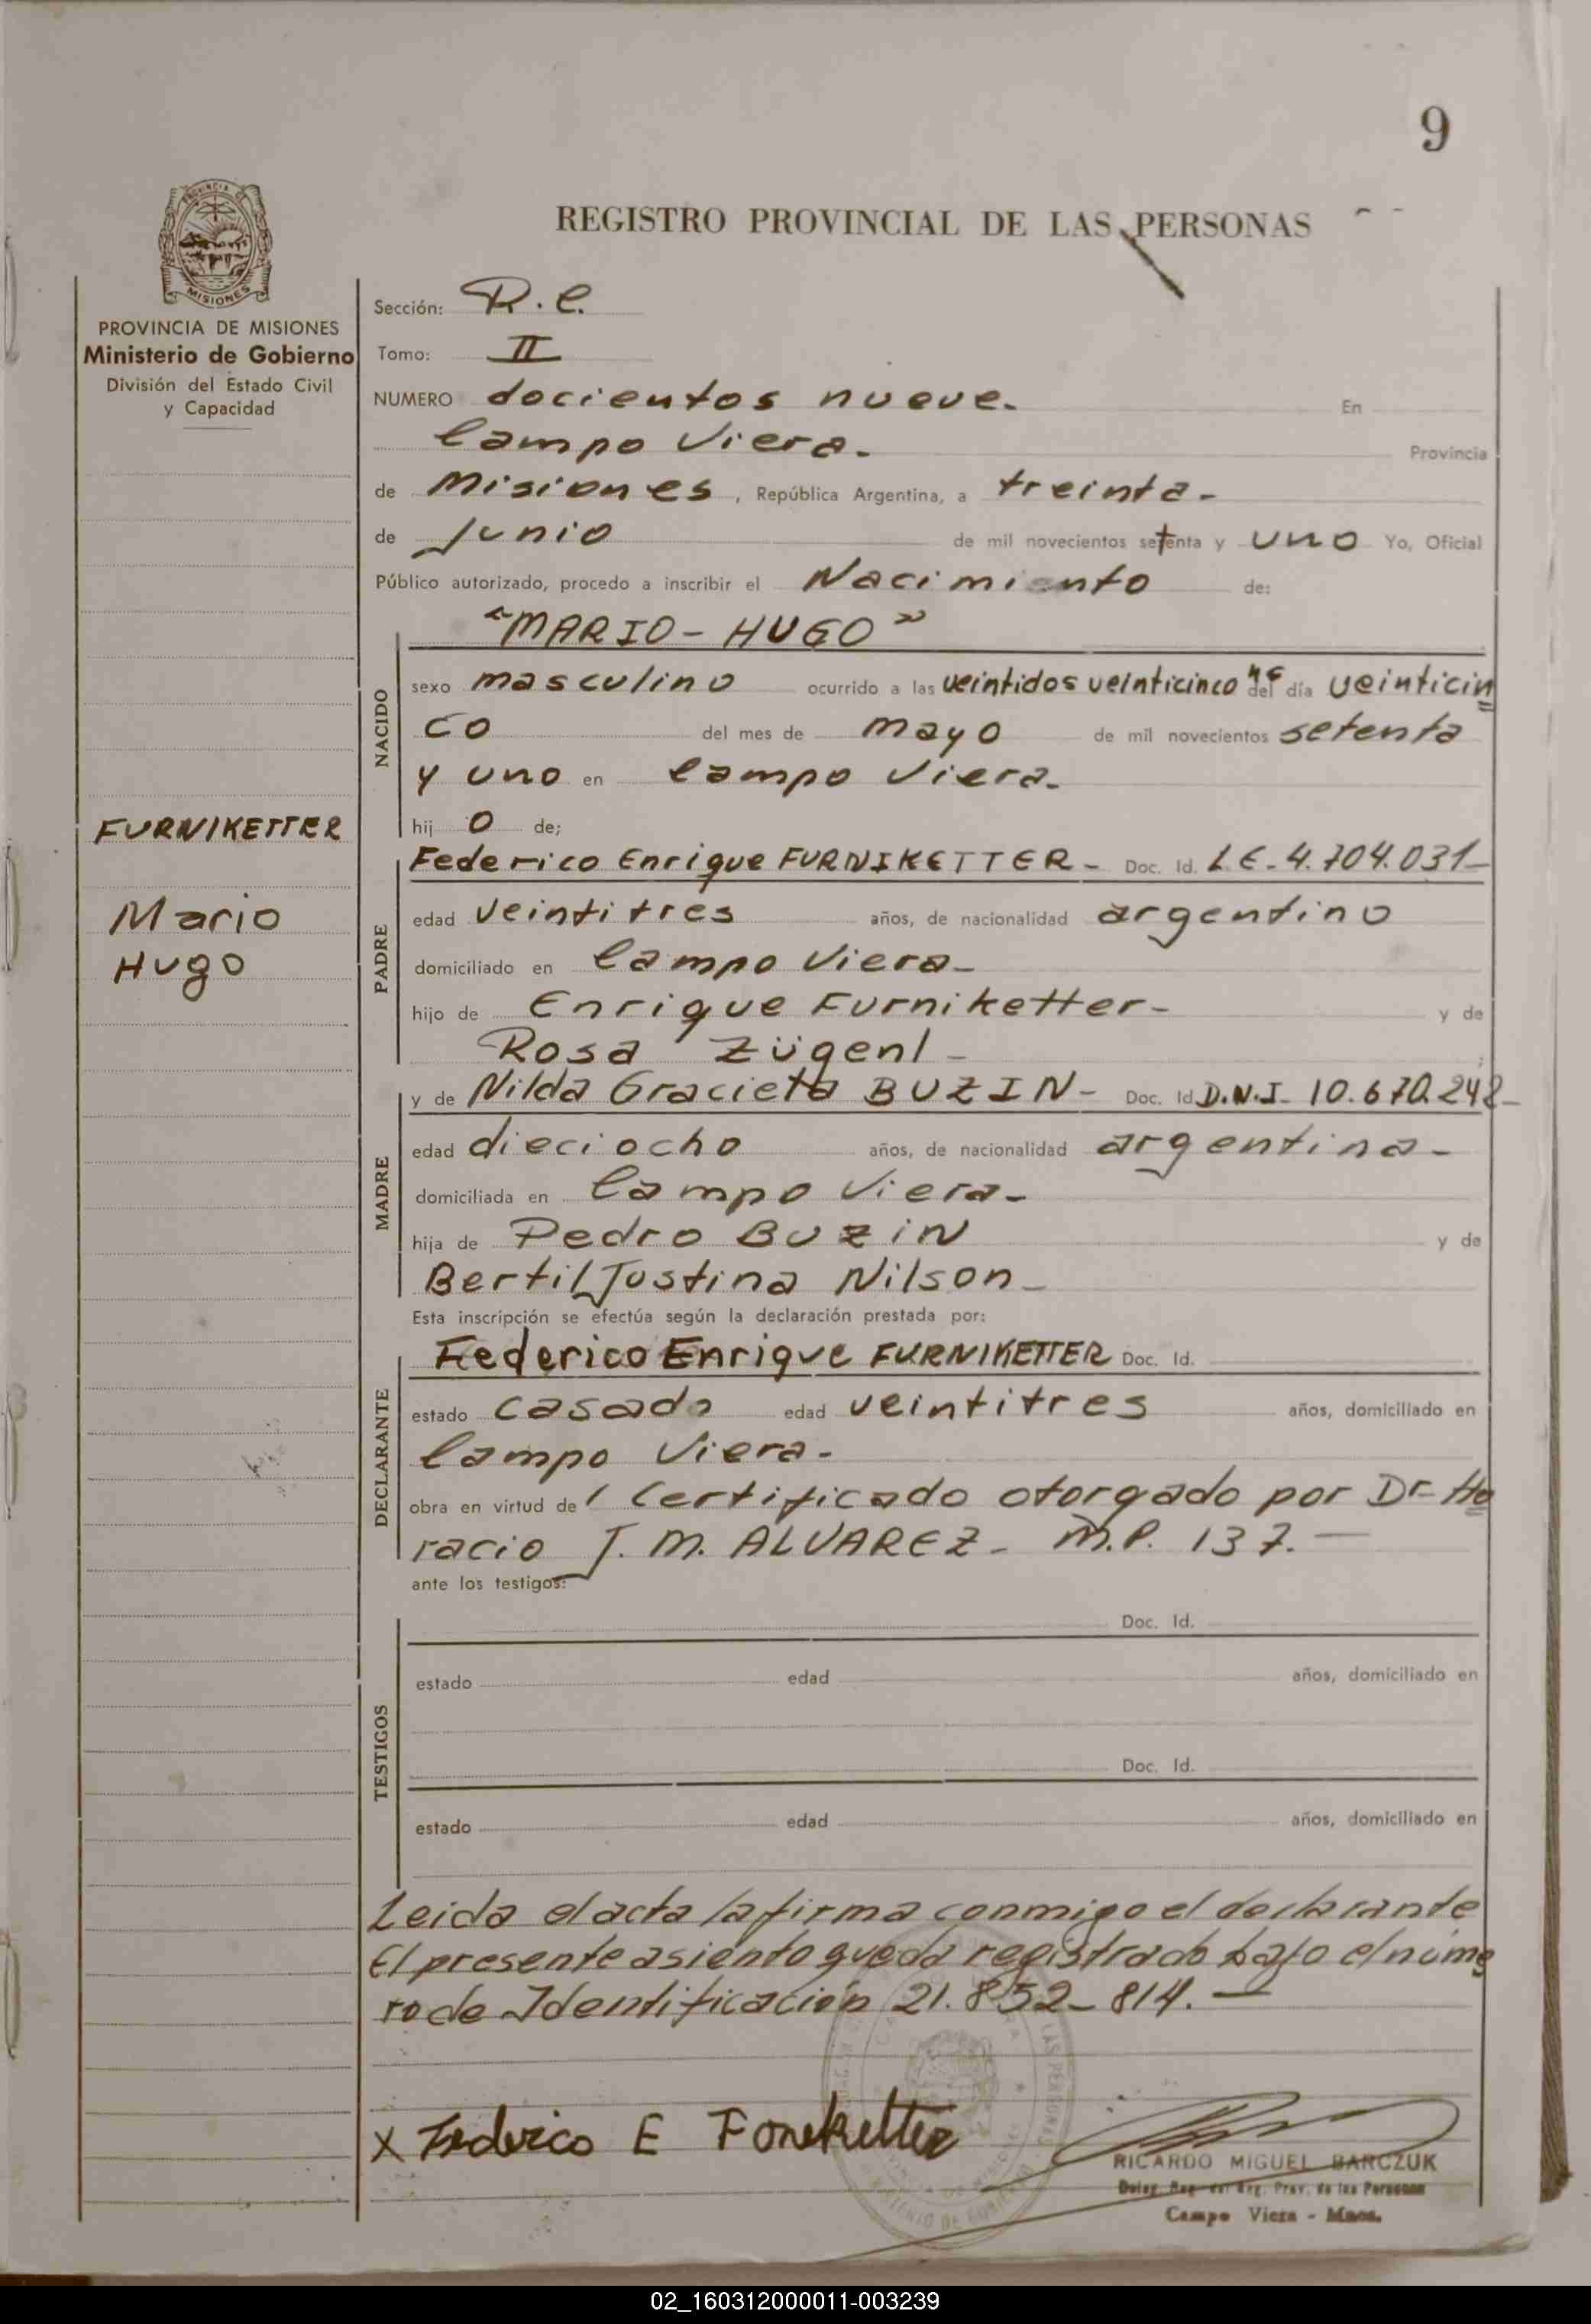 9
REGISTRO PROVINCIAL DE LAS PERSONAS
PROVINCIA DE MISIONES
Ministerio de Gobierno
División del Estado Civil
y Capacidad
Sección: R.C.
Tomo: II
NUMERO docientos nueve. En
Campo Viera. Provincia
de Misiones, República Argentina, a treinta-
de Junio de mil novecientos setenta y uno Yo, Oficial
Público autorizado, procedo a inscribir el Nacimiento de:
"MARIO-HUGO"
NACIDO
sexo masculino ocurrido a las veintidos veinticinco del día veinticin
co del mes de mayo de mil novecientos setenta
y uno en Campo Viera.
hijo de;
FURNIKETTER
Mario
Hugo
PADRE
Federico Enrique FURNIKETTER- Doc. Id. L E-4.704.031-
edad veintitres años, de nacionalidad argentino
domiciliado en Campo Viera-
hijo de Enrique Furniketter- y de
Rosa Zügenl-
MADRE
y de Nilda Gracieta BUZIN- Doc. Id D.N.I- 10.670.242-
edad dieciocho años, de nacionalidad argentina-
domiciliada en Campo Viera-
hija de Pedro BUZIN y de
Bertil Justina Nilson-
Esta inscripción se efectúa según la declaración prestada por:
DECLARANTE
Federico Enrique FURNIKETTER Doc. Id.
estado casado edad veintitres años, domiciliado en
Campo Viera-
obra en virtud de l Certificado otorgado por Dr- Ho
racio J. M. ALVAREZ- M.P. 137.-
ante los testigos:
TESTIGOS
Doc. Id.
estado edad años, domiciliado en
Doc. Id.
estado edad años, domiciliado en
Leida el acta la firma conmigo el declarante
El presente asiento queda registrado bajo el núme
ro de Identificación 21.852-814.-
X Federico E Foneketter
RICARDO MIGUEL BARCZUK
Deleg. Reg. del Reg. Prov. de las Personas
Campo Viera - Mnes.
02_160312000011-003239